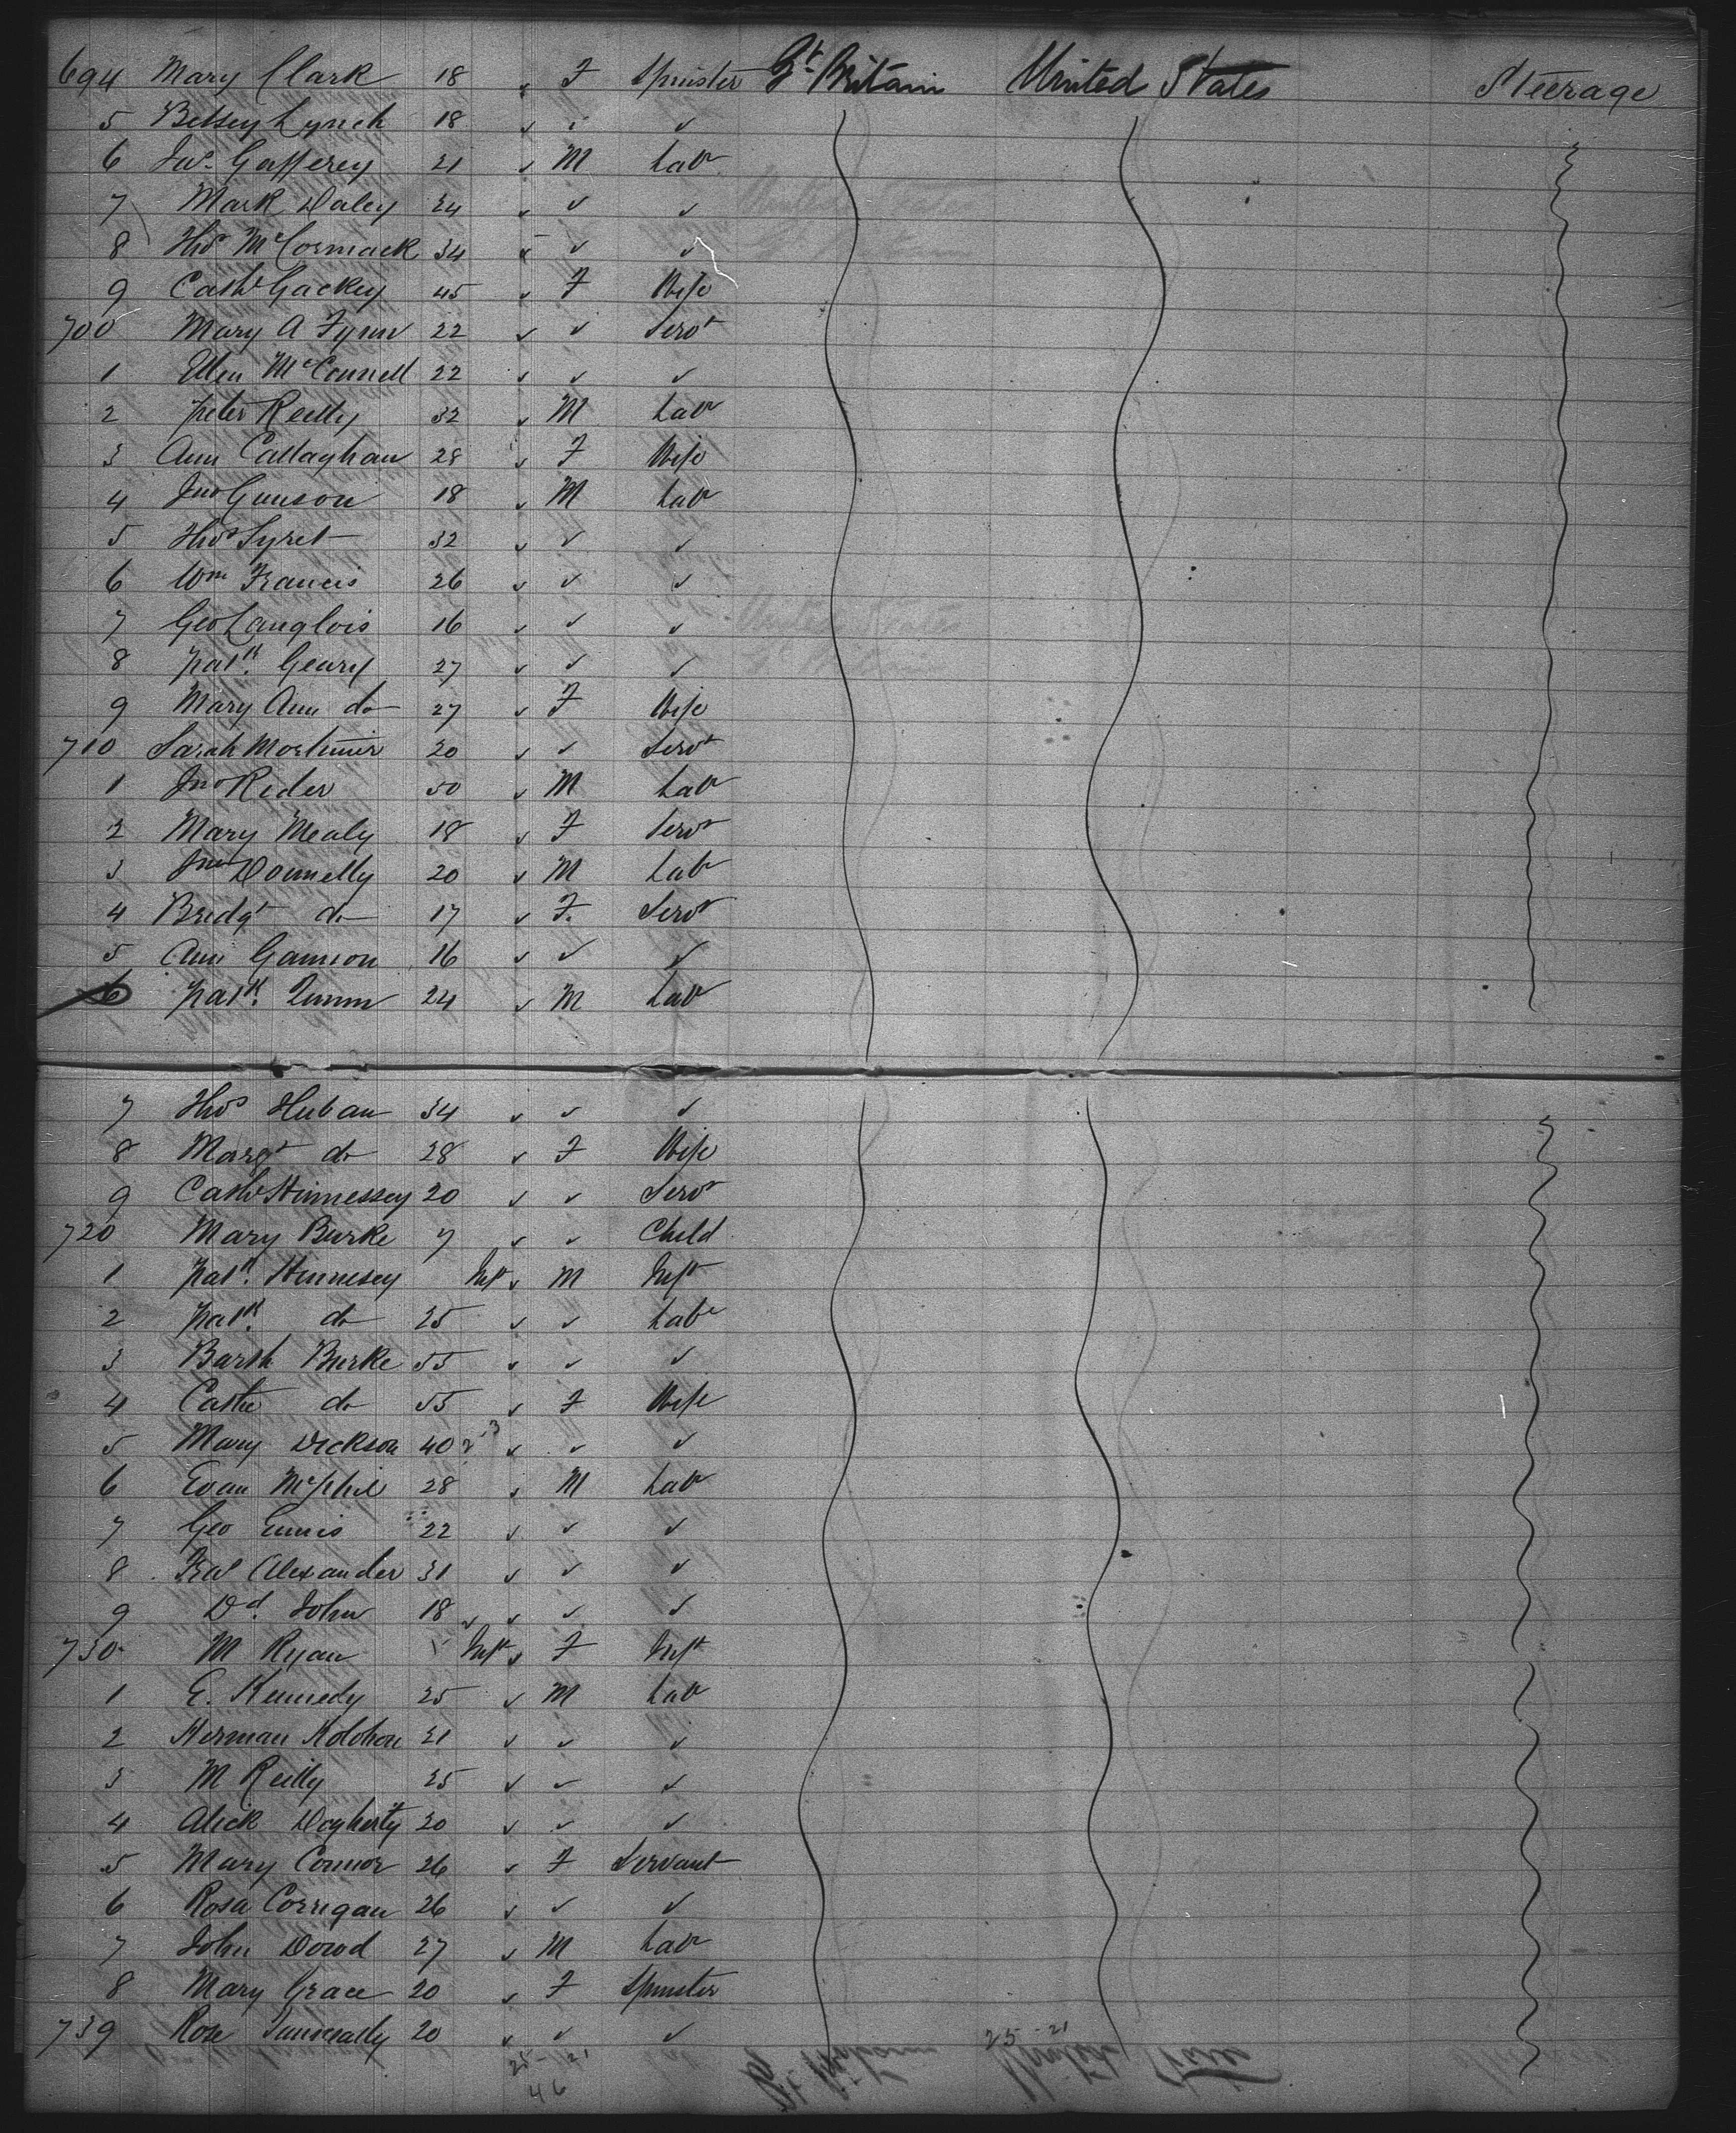 694 Mary Clark 18 ✓ F Spinster Gt. Britain United States Steerage
5 Betsey Lynch 18 ✓ ✓ ✓
6 Jas. Gafferey 21 ✓ M Labr
7 Mark Daley 24 ✓ ✓ ✓
8 Thos McCormack 34 ✓ ✓ ✓
9 Cathe Gackey 45 ✓ F Wife
700 Mary A Fynn 22 ✓ ✓ Servt
1 Ellen McConnell 22 ✓ ✓ ✓
2 Peter Reilly 32 ✓ M Labr
3 Ann Callaghan 28 ✓ F Wife
4 Jno Gunson 18 ✓ M Labr
5 Thos Syret 32 ✓ ✓ ✓
6 Wm Francis 26 ✓ ✓ ✓
7 Geo Langlois 16 ✓ ✓ ✓
8 Patk. Geary 27 ✓ ✓ ✓
9 Mary Ann do 27 ✓ F Wife
710 Sarah Mortimer 20 ✓ ✓ Servt
1 Jno Rider 50 ✓ M Labr
2 Mary Mealy 18 ✓ F Servt
3 Jno Donnelly 20 ✓ M Labr
4 Bridgt do 17 ✓ F. Servt
5 Ann Gannon 16 ✓ ✓ ✓
6 Patk. Quinn 24 ✓ M Labr
7 Thos Huban 34 ✓ ✓ ✓
8 Margt do 28 ✓ F Wife
9 Cathe Hinnessey 20 ✓ ✓ Servt
720 Mary Burke 7 ✓ ✓ Child
1 Patk. Hinnesey Inft ✓ M Inft
2 Patk. do 25 ✓ ✓ Labr
3 Barth Burke 55 ✓ ✓ ✓
4 Cathe do 55 ✓ F Wife
5 Mary Dickson 40 ✓ ✓ ✓
6 Evan McPhie 28 ✓ M Labr
7 Geo Ennis 22 ✓ ✓ ✓
8 Fras Alexander 31 ✓ ✓ ✓
9 Dd. John 18 ✓ ✓ ✓
730 M Ryan Inft ✓ F Inft
1 E. Kennedy 25 ✓ M Labr
2 Herman 21 ✓ ✓ ✓
3 M Reilly 25 ✓ ✓ ✓
4 Alick Dogherty 20 ✓ ✓ ✓
5 Mary Connor 26 ✓ F Servant
6 Rosa Corrigan 26 ✓ ✓ ✓
7 John Dowd 27 ✓ M Labr
8 Mary Grace 20 ✓ F Spinster
739 Rose 20 ✓ ✓ ✓
25-21 25-21
46